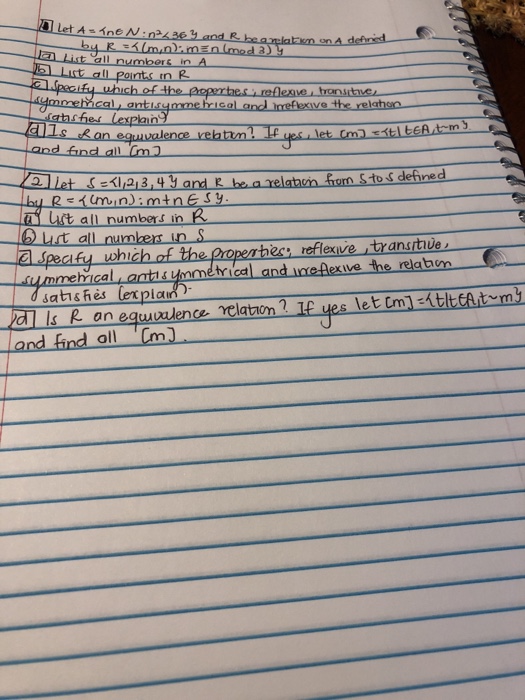 1 Let A = {n∈N : n²<36} and R be a relation on A defined
by R = {(m,n): m≡n (mod 3)}
a List all numbers in A
b List all points in R
c Specify which of the properties; reflexive, transitive,
symmetrical, antisymmetrical and irreflexive the relation
satisfies (explain)
d Is R an equivalence relation? If yes, let [m] = {t|t∈A, t~m}
and find all [m]
2 Let S = {1,2,3,4} and R be a relation from S to S defined
by R = {(m,n): m+n ∈ S}.
a List all numbers in R
b List all numbers in S
c specify which of the properties; reflexive, transitive,
symmetrical, antisymmetrical and irreflexive the relation
satisfies (explain).
d Is R an equivalence relation? If yes let [m] = {t|t∈A, t~m}
and find all [m].